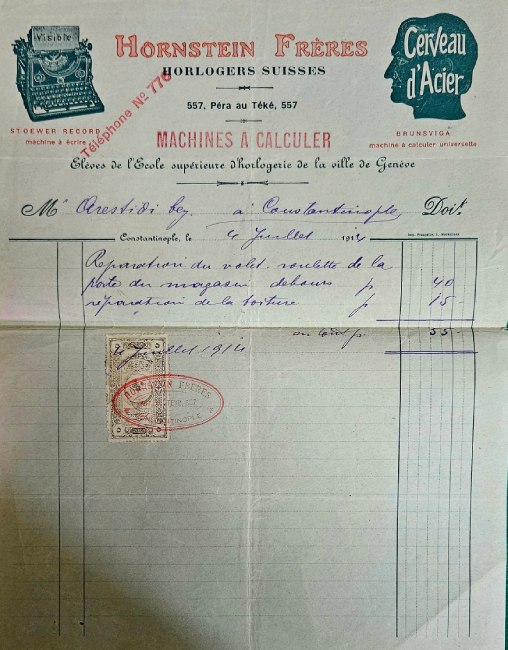 Visible
HORNSTEIN FRÈRES
HORLOGERS SUISSES
557, Péra au Téké, 557
Téléphone Nº 776
Cerveau
d'Acier
STOEWER RECORD
machine à écrire
MACHINES A CALCULER
BRUNSVIGA
machine à calculer universelle
Elèves de l'Ecole supérieure d'horlogerie de la ville de Genève
Mr Arestidi bey à Constantinople, Doit
Constantinople, le 4 Juillet 1914
Reparation du volet roulette de la
porte du magasin debours p 40
réparation de la toiture p 15-
en tout p. 55-
4 Juillet 1914
HORNSTEIN FRÈRES
CONSTANTINOPLE